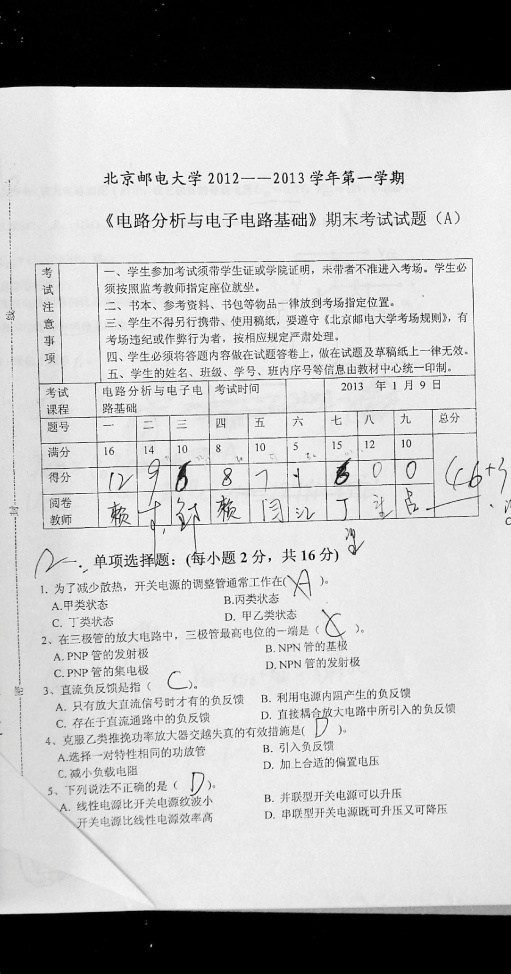 北京邮电大学2012——2013学年第一学期
《电路分析与电子电路基础》期末考试试题（A）
考试注意事项
一、学生参加考试须带学生证或学院证明，未带者不准进入考场。学生必
须按照监考教师指定座位就坐。
二、书本、参考资料、书包等物品一律放到考场指定位置。
三、学生不得另行携带、使用稿纸，要遵守《北京邮电大学考场规则》，有
考场违纪或作弊行为者，按相应规定严肃处理。
四、学生必须将答题内容做在试题答卷上，做在试题及草稿纸上一律无效。
五、学生的姓名、班级、学号、班内序号等信息由教材中心统一印制。
考试 电路分析与电子电 考试时间 2013 年 1 月 9 日
课程 路基础
题号 一 二 三 四 五 六 七 八 九 总分
满分 16 14 10 8 10 5 15 12 10
得分 12 9 8 7 0 0 46+3
阅卷
教师 赖 赖 闫 江 丁
12 一、单项选择题：(每小题 2 分，共 16 分)
1. 为了减少散热，开关电源的调整管通常工作在( A )。
A.甲类状态 B.丙类状态
C. 丁类状态 D. 甲乙类状态
2、在三极管的放大电路中，三极管最高电位的一端是（ C ）。
A. PNP 管的发射极 B. NPN 管的基极
C. PNP 管的集电极 D. NPN 管的发射极
3、直流负反馈是指（ C ）。
A. 只有放大直流信号时才有的负反馈 B. 利用电源内阻产生的负反馈
C. 存在于直流通路中的负反馈 D. 直接耦合放大电路中所引入的负反馈
4、克服乙类推挽功率放大器交越失真的有效措施是( D )。
A.选择一对特性相同的功放管 B. 引入负反馈
C. 减小负载电阻 D. 加上合适的偏置电压
5、下列说法不正确的是（ D ）。
A. 线性电源比开关电源纹波小 B. 并联型开关电源可以升压
开关电源比线性电源效率高 D. 串联型开关电源既可升压又可降压